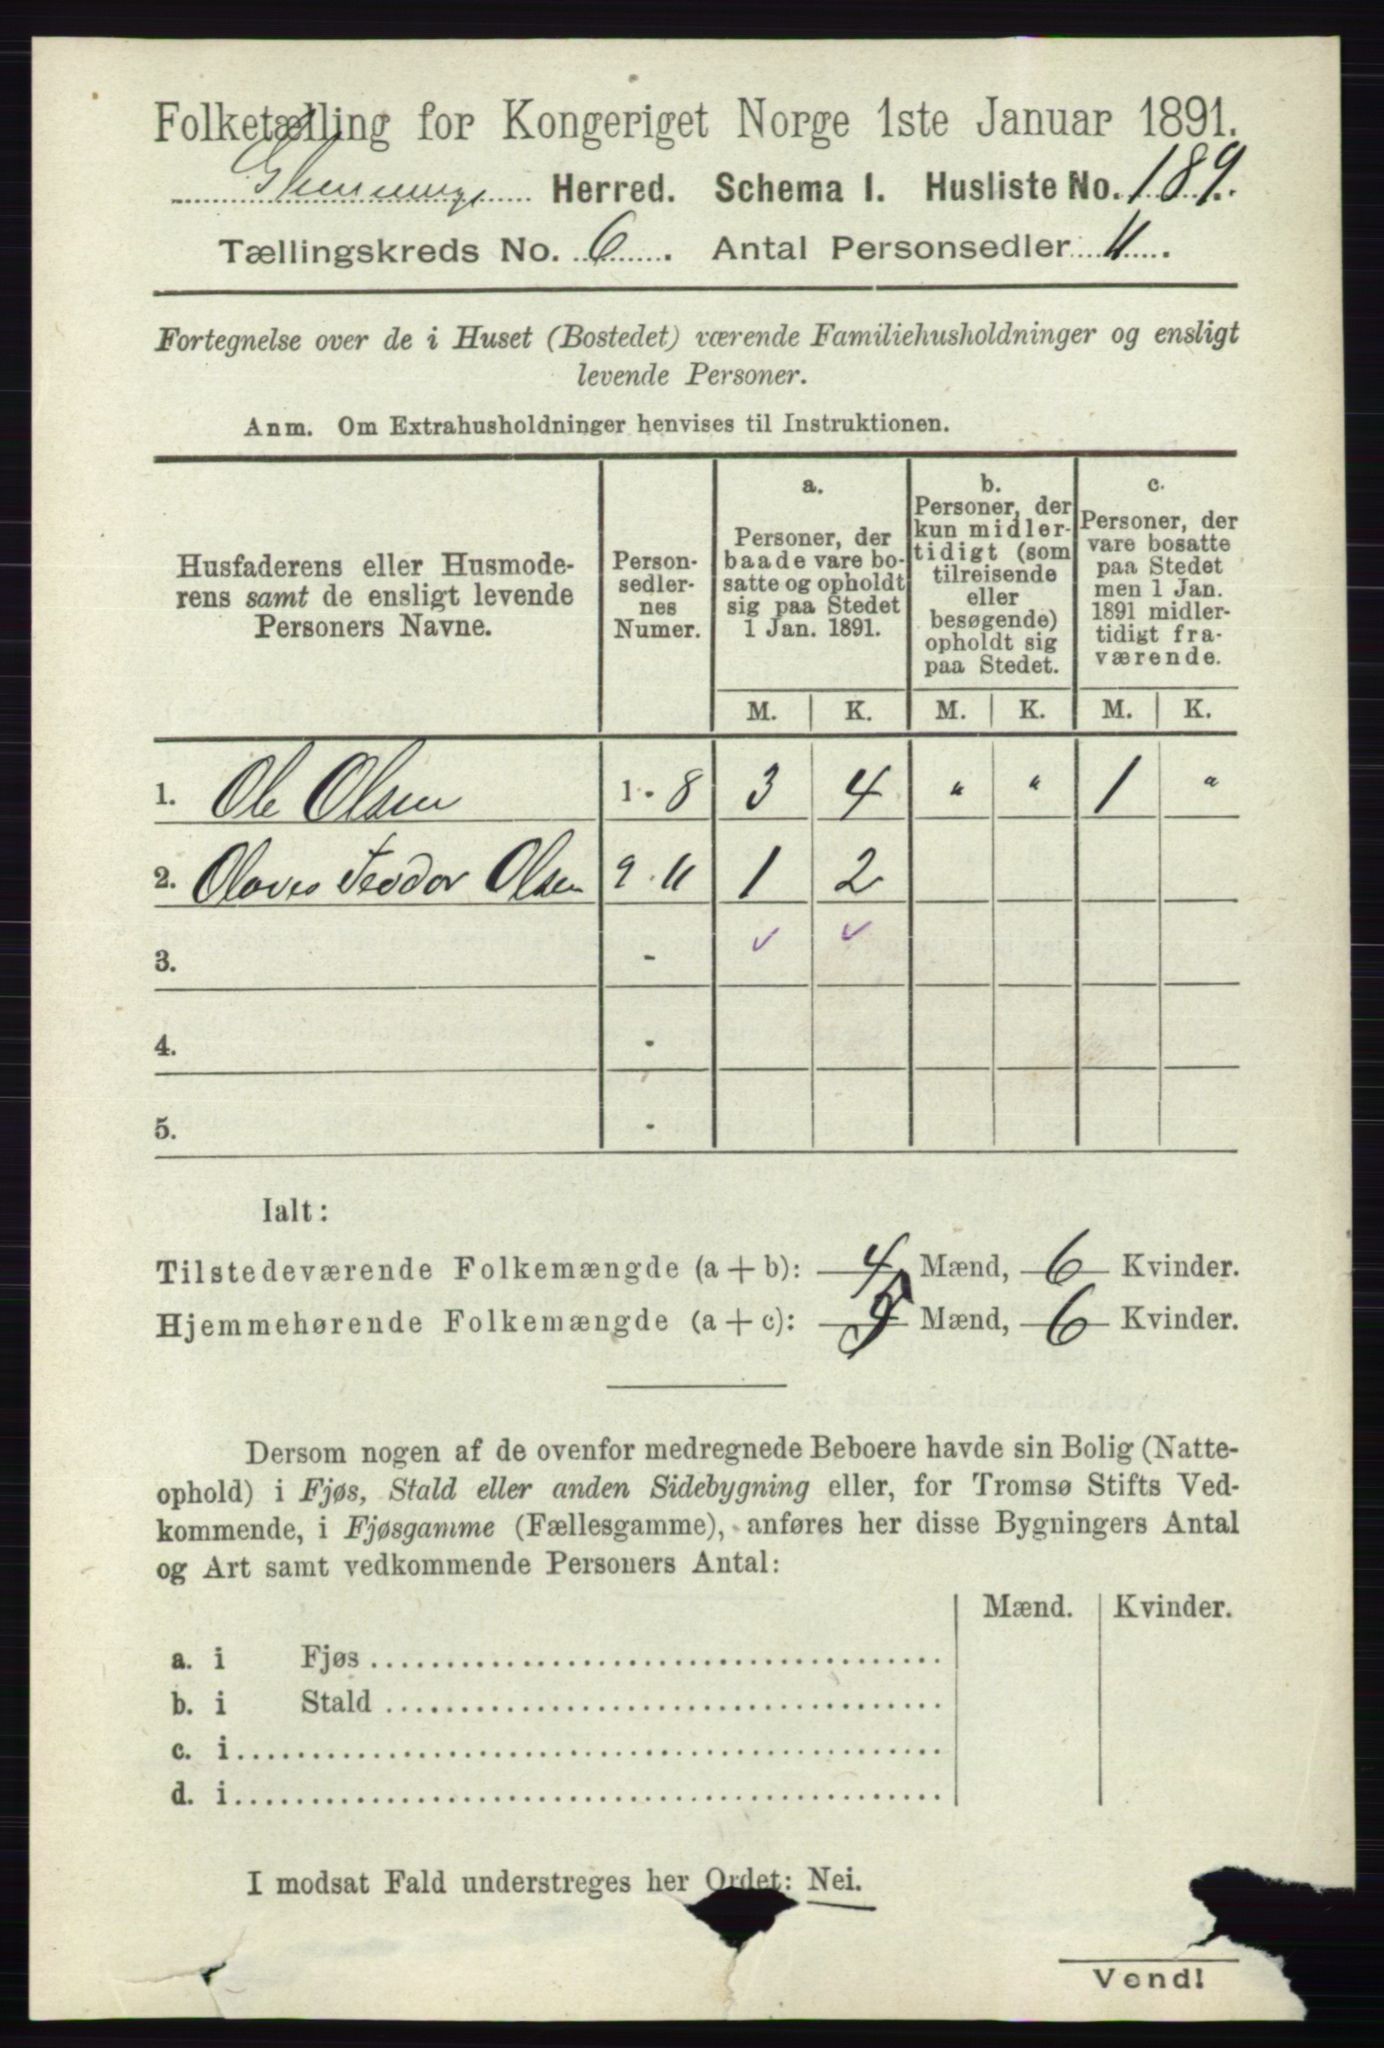 Folketælling for Kongeriget Norge 1ste Januar 1891.
Glemminge Herred. Schema 1. Husliste No. 189.
Tællingskreds No. 6. Antal Personsedler 11.
Fortegnelse over de i Huset (Bostedet) værende Familiehusholdninger og ensligt
levende Personer.
Anm. Om Extrahusholdninger henvises til Instruktionen.
Husfaderens eller Husmode-
rens samt de ensligt levende
Personers Navne.
Person-
sedler-
nes
Numer.
a.
Personer, der
baade vare bo-
satte og opholdt
sig paa Stedet
1 Jan. 1891.
b.
Personer, der
kun midler-
tidigt (som
tilreisende
eller
besøgende)
opholdt sig
paa Stedet.
c.
Personer, der
vare bosatte
paa Stedet
men 1 Jan.
1891 midler-
tidigt fra-
værende.
M. K. M. K. M. K.
1. Ole Olsen 1 - 8 3 4 " " 1 "
2. Olaves Teodor Olsen 9 - 11 1 2
3. -
4. -
5. -
Ialt:
Tilstedeværende Folkemængde (a + b): 4 Mænd, 6 Kvinder.
Hjemmehørende Folkemængde (a + c): 5 Mænd, 6 Kvinder.
Dersom nogen af de ovenfor medregnede Beboere havde sin Bolig (Natte-
ophold) i Fjøs, Stald eller anden Sidebygning eller, for Tromsø Stifts Ved-
kommende, i Fjøsgamme (Fællesgamme), anføres her disse Bygningers Antal
og Art samt vedkommende Personers Antal:
Mænd. Kvinder.
a. i Fjøs
b. i Stald
c. i
d. i
I modsat Fald understreges her Ordet: Nei.
Vend!